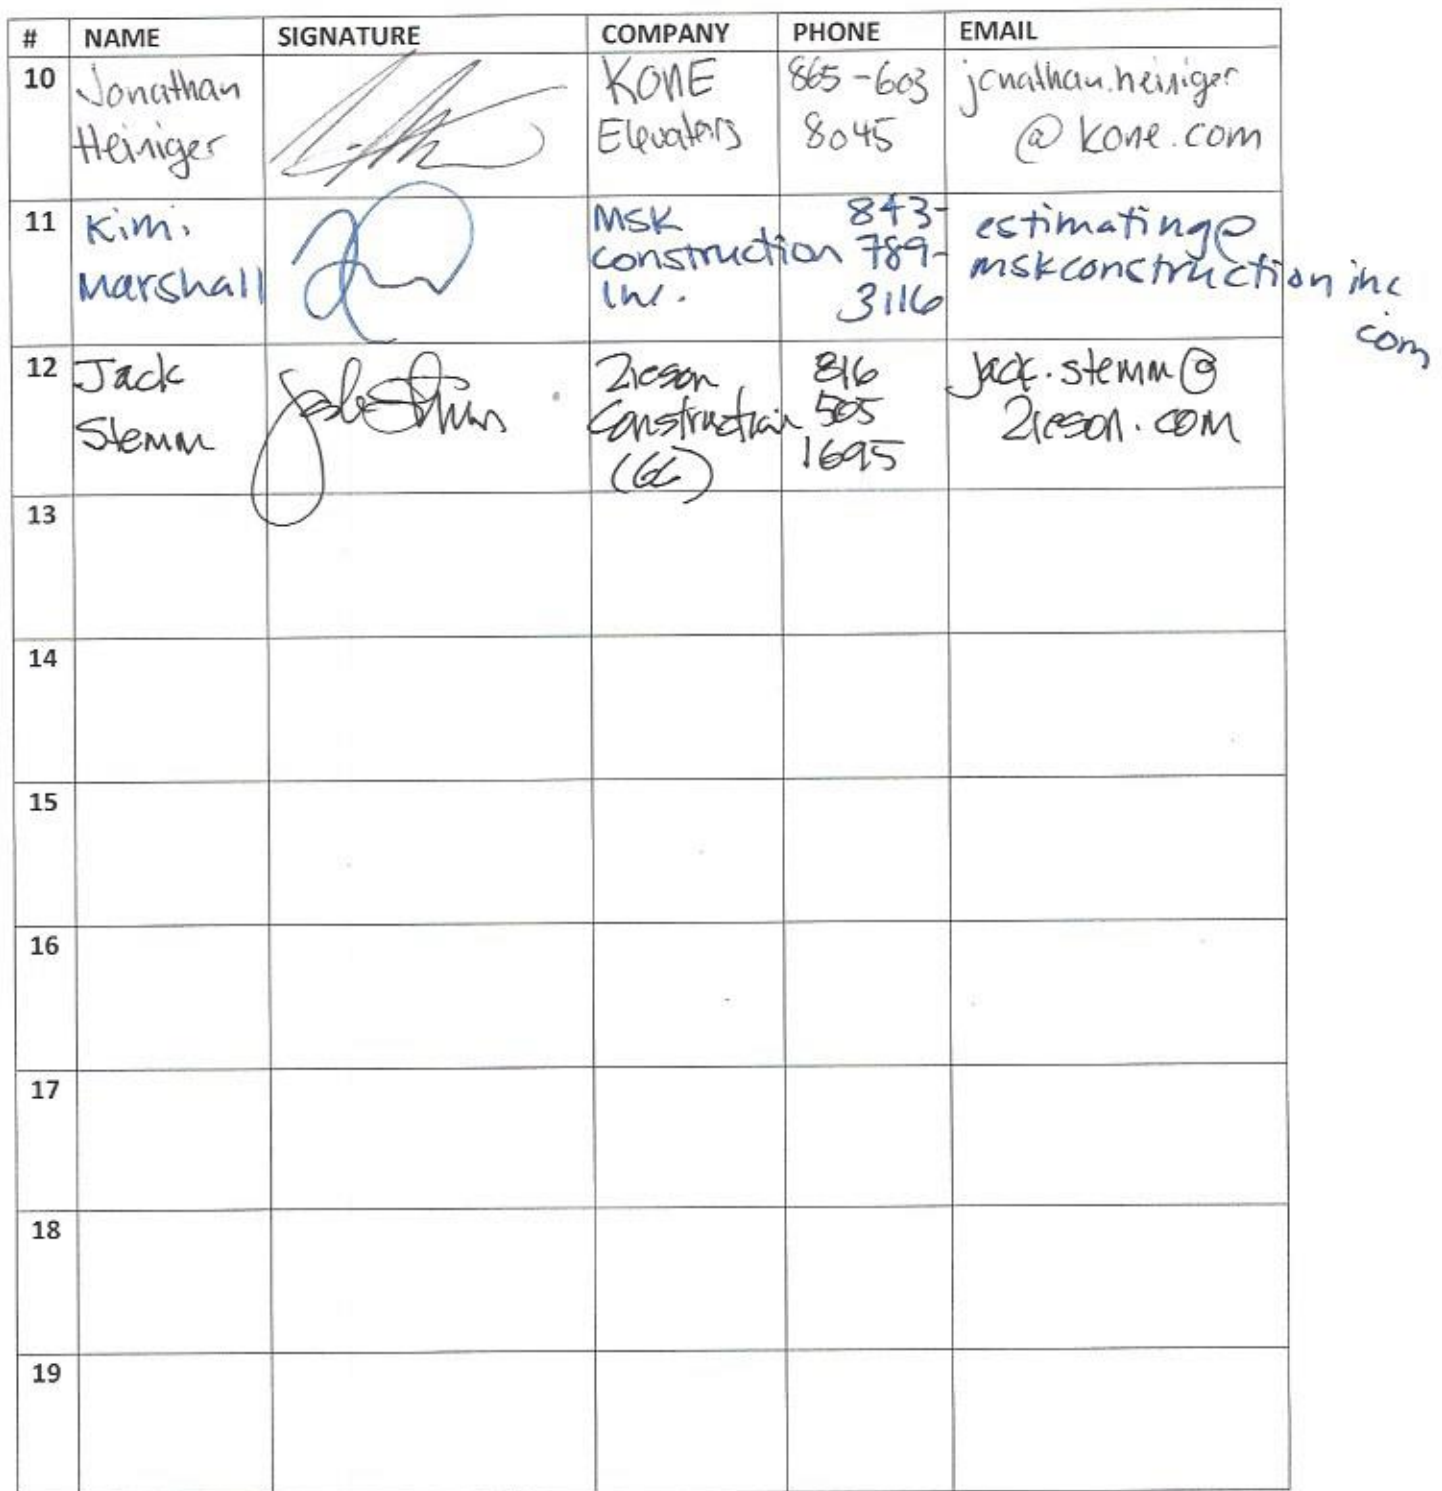 # NAME SIGNATURE COMPANY PHONE EMAIL
10 Jonathan Heiniger KONE Elevators 865-603 8045 jonathan.heiniger @kone.com
11 Kimi Marshall MSK construction Inc. 843-789-3116 estimating@ mskconstructioninc com
12 Jack Stemm Zieson Construction (GC) 816 505 1695 jack.stemm@ zieson.com
13
14
15
16
17
18
19